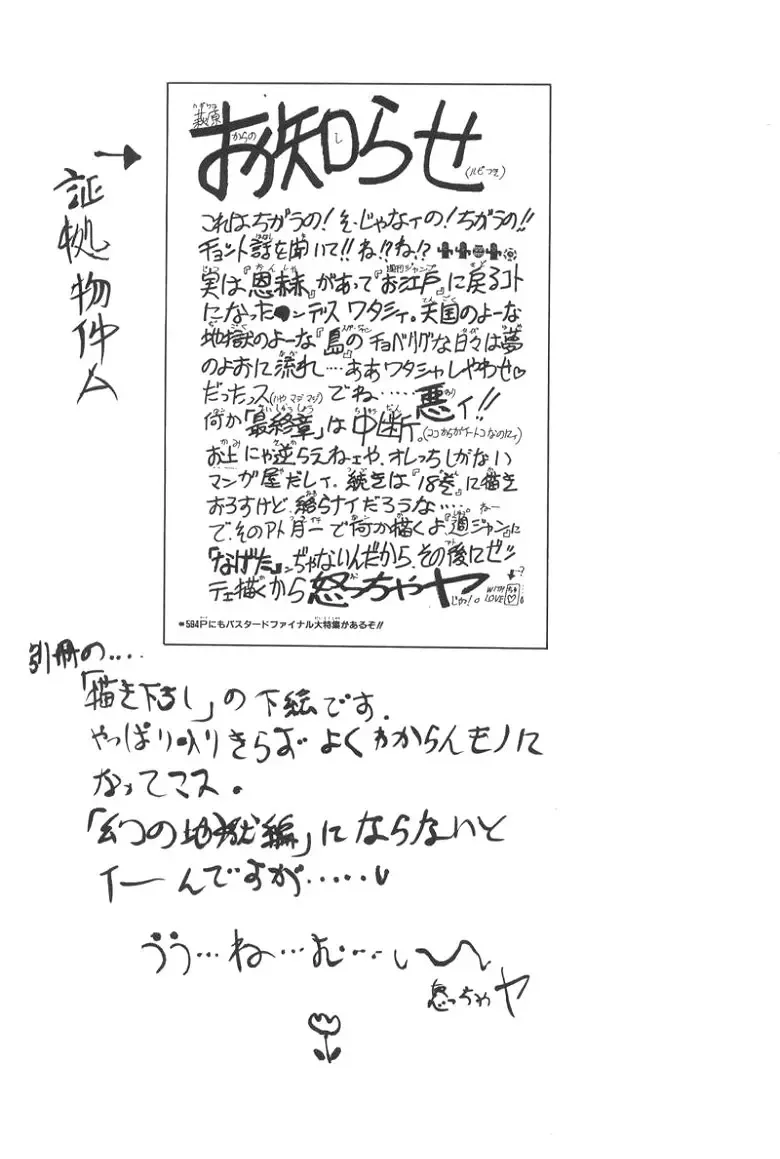 証拠物件A
萩原からのお知らせ
ハギワラ
し
(ルビつき)
これはちがうの!そーじゃなイの!ちがうの!!
チョット話を聞いて!!ね!?ね!?
実は『恩赦』があって『お江戸』に戻るコト
になったンデス ワタシィ。天国のよーな
地獄のよーな『島』の チョベリグな日々は夢
のよおに流れ……ああワタシャしやわせ♡
だったっス(いやマジマジ)でね……悪ィ!!
何か「最終章」は中断。(ココからがイートコなのにィ)
お上にゃ逆らえねェや、オレっちしがない
マンガ屋だしィ、続きは『18巻』に描き
おろすけど、終らナイだろうな……ねー
で、そのアト月一で何か描くよ『週ジャン』に
「なげた」ンぢゃないんだから、その後にゼッ
テェ描くから 怒っちゃヤ じゃ!。
WITH LOVE
※594Pにもバスタードファイナル大特集があるぞ!!
別冊の....
「描き下ろし」の下絵です.
やっぱり入りきらず よくわからんモノに
なってマス。
「幻の地獄編」にならないと
イーんですが.....
うう…ね…む…い〜
怒っちゃヤ